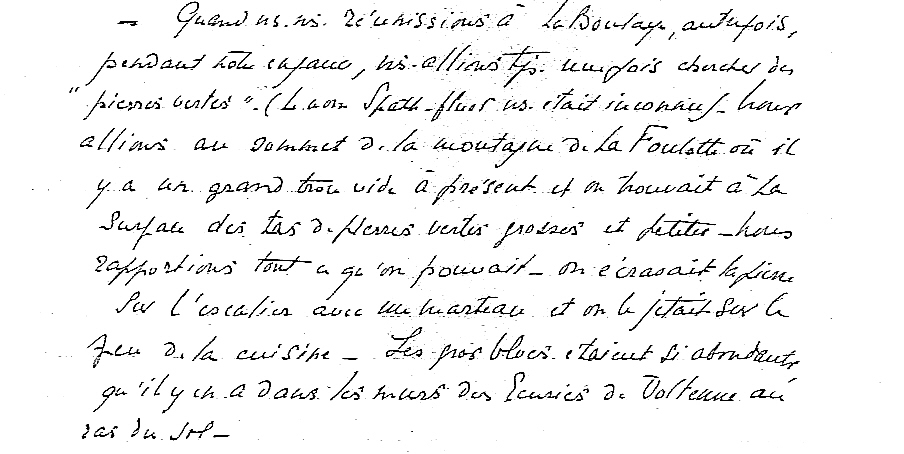 — Quand ns. ns. réunissions à La Boulaye, autrefois,
pendant notre enfance, ns. allions tjs. une fois chercher des
"pierres vertes". (Le nom Spath-fluor ns. était inconnu). Nous
allions au sommet de la montagne de La Foulotte où il
y a un grand trou vide à présent et on trouvait à la
surface des tas de pierres vertes grosses et petites — nous
rapportions tout ce qu'on pouvait — on écrasait la pierre
sur l'escalier avec un marteau et on le jetait sur le
feu de la cuisine — Les gros blocs étaient si abondants
qu'il y en a dans les murs des Ecuries de Voltenne au
ras du sol —